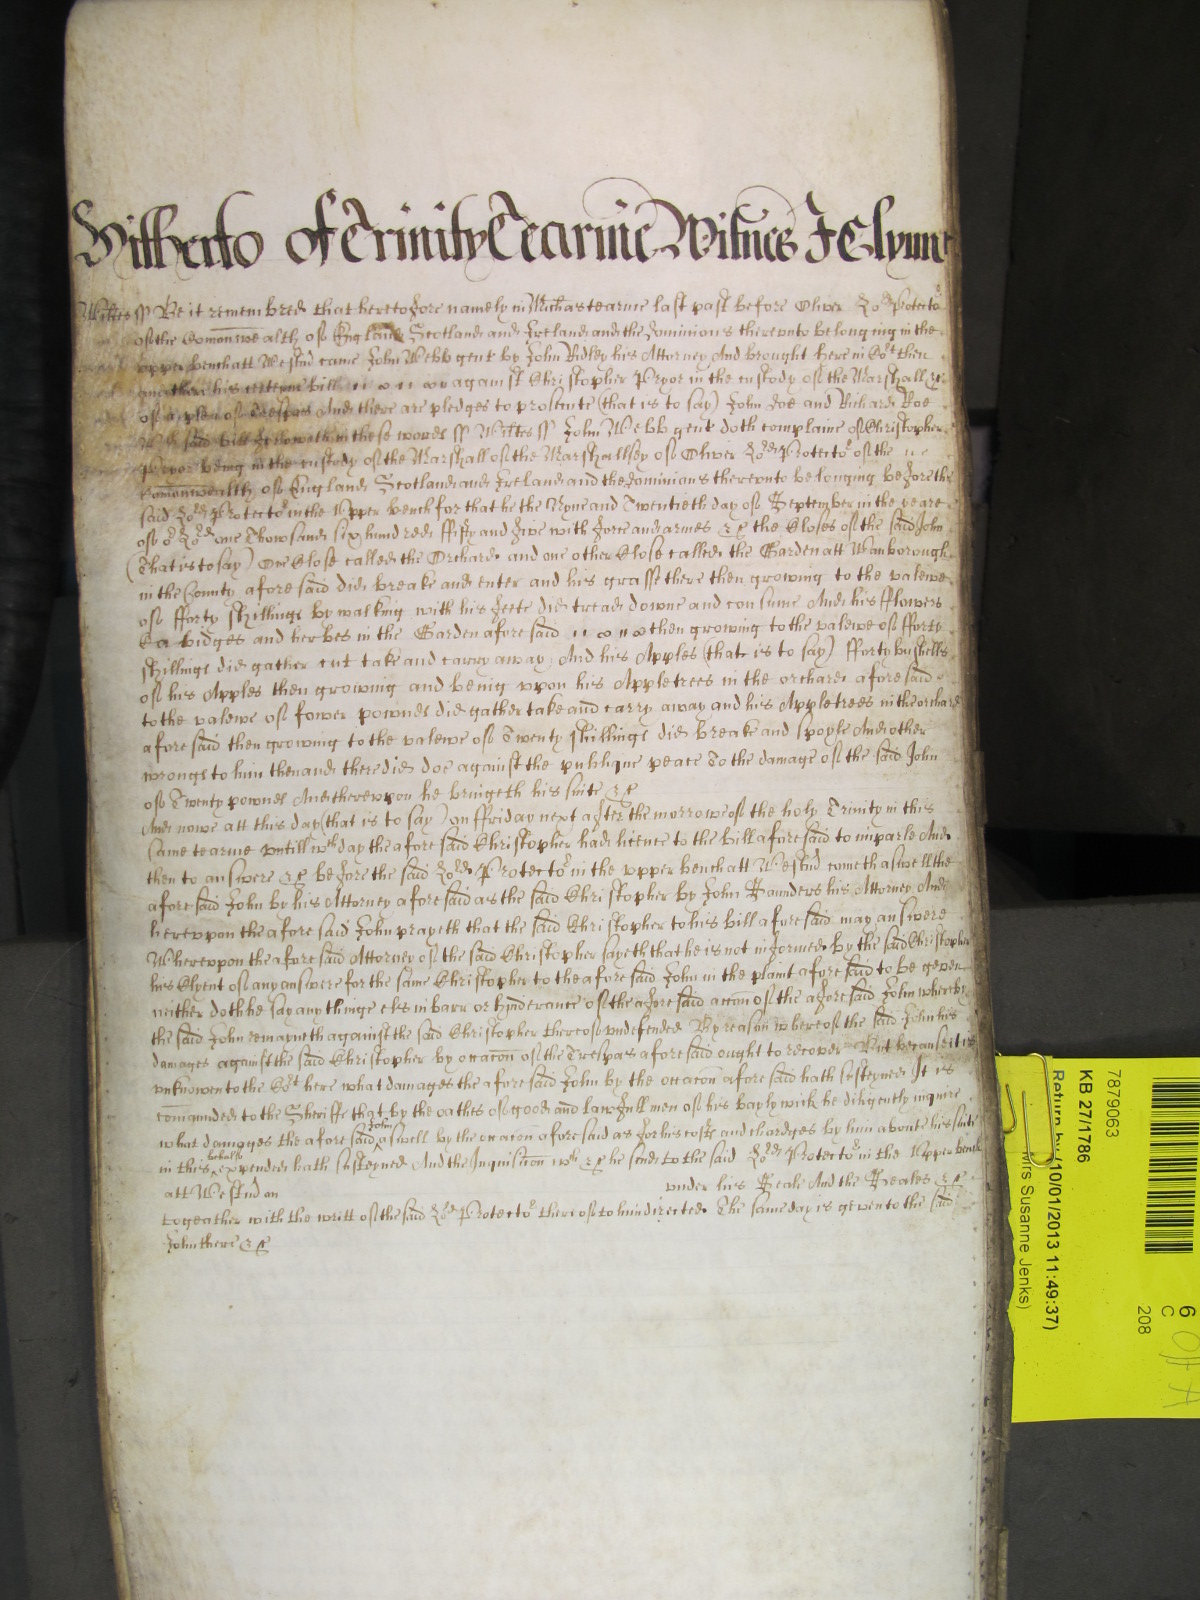 Hitherto of Trinity Tearme Witnes J Glynne
Wiltes ss Be it remembred that heretofore namely in Michas tearme last past before Oliver Lord Protector
of the Comonwealth of England Scotland and Ireland and the dominions thereunto belonging in the
upper bench att Westmr came John Webb gent by John Ridley his Attorney And brought here in Cort then
and there his certeyne bill against Christopher Pryor in the custody of the Marshall &c
of a plea of Trespas And there are pledges to prosecute (that is to say) John Doe and Richard Roe
Wch said bill followeth in these words ss Wiltes ss John Webb gent doth complaine of Christopher
Pryor being in the custody of the Marshall of the Marshallsey of Oliver Lord Protector of the
Comonwealth of England Scotland and Ireland and the dominions thereunto belonging before the
said Lord Protector in the Upper bench for that he the Nyne and Twentieth day of September in the yeare
of or Lord one Thowsand six hundred ffifty and five with force and armes &c the Closes of the said John
(That is to say) One Close called the Orchard and one other Close called the Garden att Wanborough
in the County aforesaid did breake and enter and his grasse there then growing to the valewe
of fforty shillings by walking with his feete did tread downe and consume And his fflowers
Cabidges and herbes in the Garden aforesaid then growing to the valewe of fforty
shillings did gather cut take and carry away And his Apples (that is to say) fforty bushells
of his Apples then growing and being uppon his Appletrees in the orchard aforesaid
to the valewe of fower pownds did gather take and carry away and his Appletrees in the orchard
aforesaid then growing to the valewe of Twenty shillings did breake and spoyle And other
wrongs to him then and there did doe against the publique peace To the damage of the said John
of Twenty pownds And thereuppon he bringeth his suite &c
And nowe att this day (that is to say) on ffriday next after the morrowe of the holy Trinity in this
same tearme untill wch day the aforesaid Christopher had licence to the bill aforesaid to imparle And
then to answere &c before the said Lord Protector in the upper bench att Westmr cometh aswell the
aforesaid John by his Attorney aforesaid as the said Christopher by John Saunders his Attorney And
hereuppon the aforesaid John prayeth that the said Christopher to his bill aforesaid may answere
Whereuppon the aforesaid Attorney of the said Christopher sayeth that he is not informed by the said Christopher
his Clyent of any answere for the same Christopher to the aforesaid John in the plaint aforesaid to be geven
neither doth he say any thinge els in barr or hynderance of the aforesaid accon of the aforesaid John whereby
the said John remayneth against the said Christopher thereof undefended By reason whereof the said John his
damages against the said Christopher by occacon of the Trespas aforesaid ought to recover But because it is
unknowen to the Cort here what damages the aforesaid John by the occacon aforesaid hath susteyned It is
comaunded to the Sheriffe that by the oathes of good and lawfull men of his baylywick he diligently inquire
what damages the aforesaid John aswell by the occacon aforesaid as for his costs and chardges by him aboute his suite
in this behalfe expended hath susteyned And the Inquisicon wch &c he send to the said Lord Protector in the Upper bench
att Westmr on under his Seale And the Seales &c
togeather with the writt of the said Lord Protector thereof to him directed The same day is geven to the said
John there &c
7879063
KB 27/1786
Return by (10/01/2013 11:49:37)
Mrs Susanne Jenks)
6
C
208